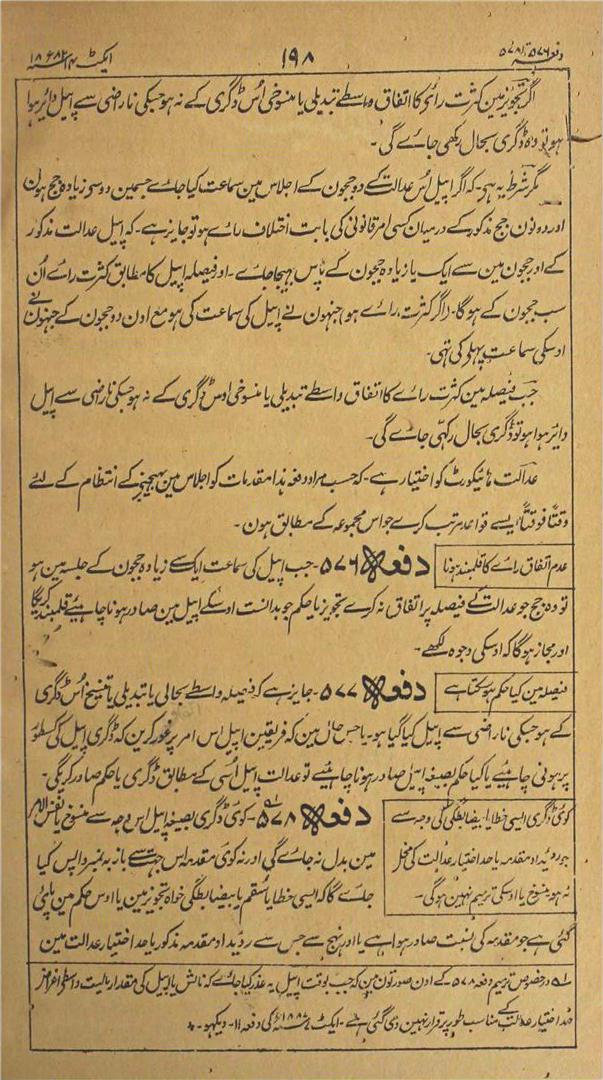 دفعہ ۵۷۶ تا ۵۷۸
۱۹۸
ایکٹ ۱۴ سنہ ۱۸۸۲ء
اگر تجویز مین کثرت رائے کا اتفاق واسطے تبدیلی یا منسوخی اُس ڈگری کے نہ ہو جسکی ناراضی سے اپیل دائر ہوا
ہو تو وہ ڈگری بحال رکھی جاے گی۔
مگر شرط یہ ہے۔ کہ اگر اپیل اُس عدالت کے دو ججون کے اجلاس مین سماعت کیا جاے جسمین دو سے زیادہ جج ہون
اور دونون جج مذکور کے درمیان کسی امر قانونی کی بابت اختلاف راے ہو تو جایز ہے۔ کہ اپیل عدالت مذکور
کے اور ججون مین سے ایک یا زیادہ ججون کے پاس بہیجا جاے۔ اور فیصلہ اپیل کا مطابق کثرت راے اُن
سب ججون کے ہوگا۔ (اگر کثرت راے ہو) جنہون نے اپیل کی سماعت کی ہو مع اون دو ججون کے جنہون نے
اوسکی سماعت پہلے کی تہی۔
جب فیصلہ مین کثرت راے کا اتفاق واسطے تبدیلی یا منسوخی اوس ڈگری کے نہ ہو جسکی ناراضی سے اپیل
دایر ہوا ہو تو ڈگری بحال رکہی جاے گی۔
عدالت ہائیکورٹ کو اختیار ہے۔ کہ حسب مراد دفعہ ہذا مقدمات کو اجلاس مین بہیجنے کے انتظام کے لئے
وقتاً فوقتاً ایسے قواعد مرتب کرے جو اس مجموعہ کے مطابق ہون۔
عدم اتفاق راے کا قلمبند ہونا
دفعہ ۵۷۶۔ جب اپیل کی سماعت ایک سے زیادہ ججون کے جلسہ مین ہو
تو وہ جج جو عدالت کے فیصلہ پر اتفاق نہ کرے تجویز یا حکم جو بدانست اوسکے اپیل مین صادر ہونا چاہیے قلمبند کریگا
اور مجاز ہوگا کہ اوسکی وجوہ لکھے۔
فیصلہ مین کیا حکم ہوسکتا ہے
دفعہ ۵۷۷۔ جایز ہے کہ فیصلہ واسطے بحالی یا تبدیلی یا تنسیخ اُس ڈگری
کے ہو جسکی ناراضی سے اپیل کیا گیا ہو۔ یا جس حال مین کہ فریقین اپیل اس امر پر غور کرین کہ ڈگری اپیل کی کسطور
پر ہونی چاہیے یا کیا حکم بصیغہ اپیل صادر ہونا چاہیے تو عدالت اپیل اُسی کے مطابق ڈگری یا حکم صادر کریگی۔
کوئی ڈگری ایسی خطا یا بیضابطگی کی وجہ سے
جو روئداد مقدمہ یا حد اختیار عدالت کی مخل
نہ ہو منسوخ یا اوسکی ترمیم نہین ہوگی۔
دفعہ ۵۷۸۔ کوئی ڈگری بصیغہ اپیل اس وجہ سے منسوخ یا نفس الامر
مین بدل نہ جاے گی اور نہ کوئی مقدمہ اس جہت سے باز بہ نمبر واپس کیا
جائے گا کہ ایسی خطا یا سقم یا بیضابطگی خواہ تجویز مین یا اوس حکم مین پائی
گئی ہے جو مقدمہ کی نسبت صادر ہوا ہے یا اور نہج سے جس سے روئداد مقدمہ مذکور یا حد اختیار عدالت مین
درخصوص ترمیم دفعہ ۵۷۸۔ کے اون صورتون مین کہ جب بوقت اپیل یہ عذر کیا جاے کہ نالش یا اپیل کی مقدار مالیت واسطے اغراض
حد اختیار عدالت کے مناسب طور پر قرار نہین دی گئی ہے۔ ایکٹ ۷ سنہ ۱۸۸۷ء کی دفعہ ۱۱۔ دیکہو۔